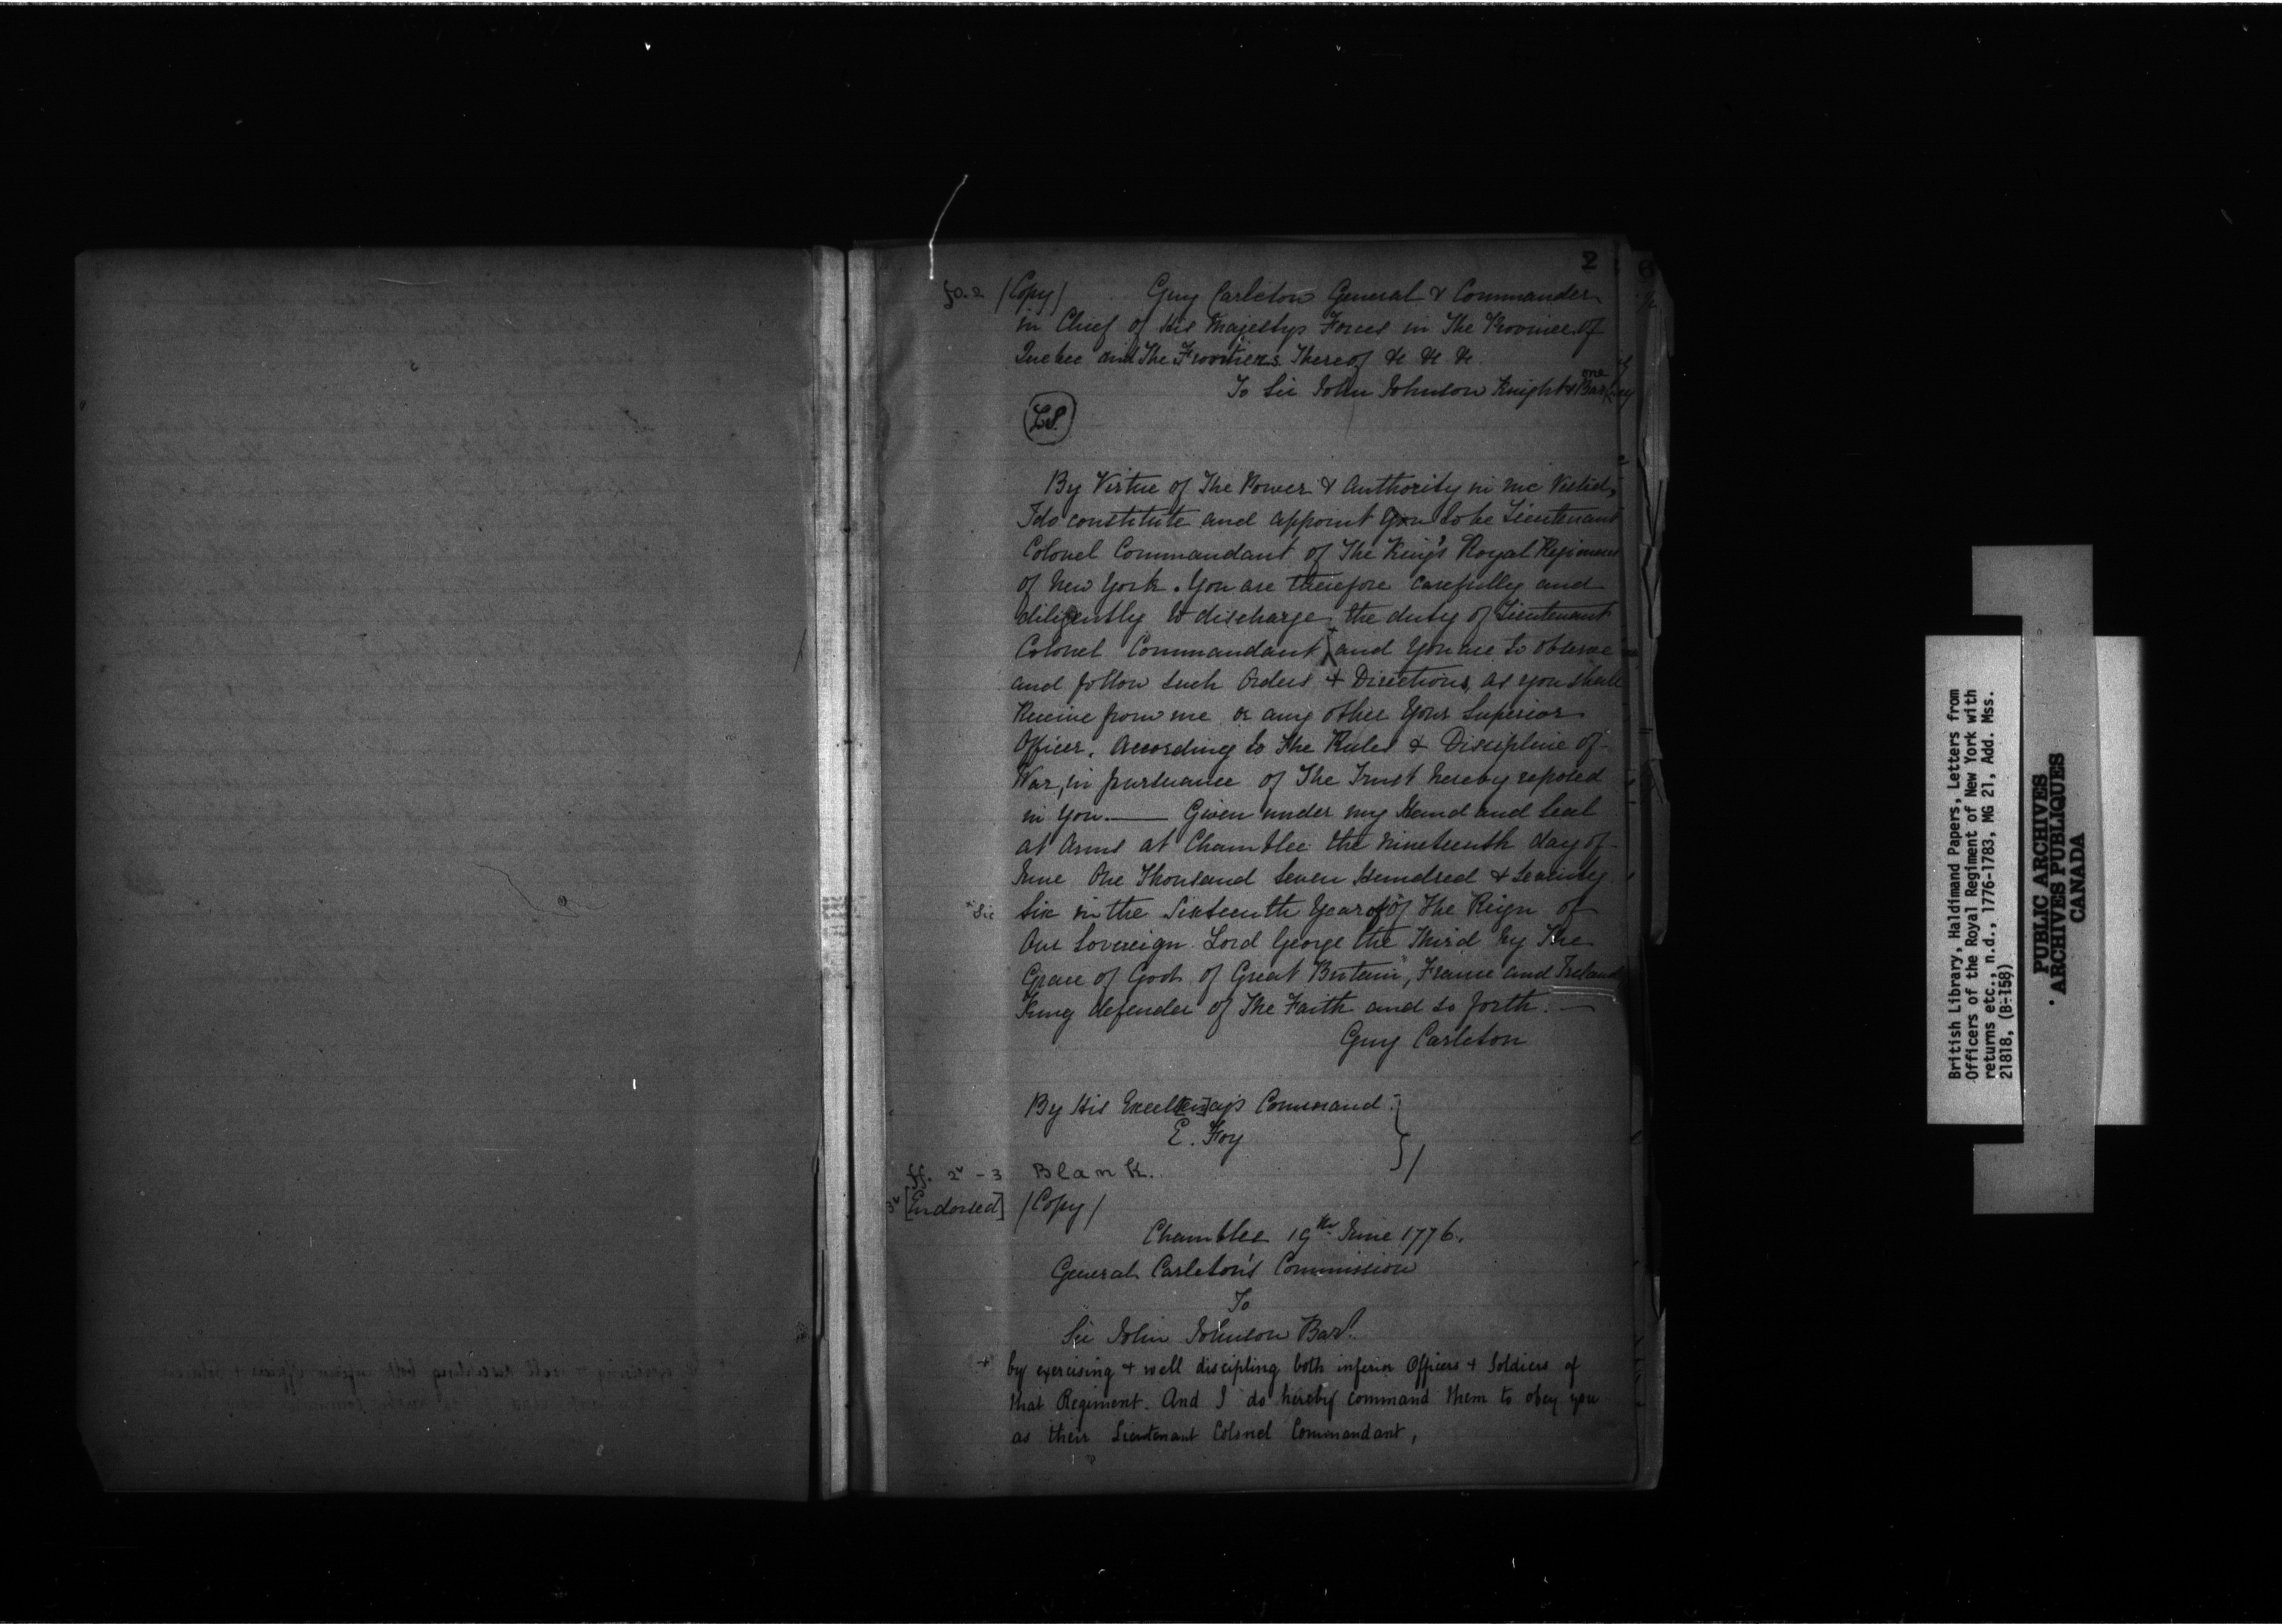 2
fo. 2 /Copy/ Guy Carleton General & Commander
in Chief of His Majestys Forces in The Province of
Quebec and The Frontiers Thereof &c &c &c
To Sir John Johnson Knight & Barone
LS.
By Virtue of The Power & Authority in me Vested,
I do constitute and appoint You to be Lieutenant
Colonel Commandant of The King's Royal Regiment
of New York. You are therefore carefully and
diligently to discharge the duty of Lieutenant
Colonel Commandant + and You are to observe
and follow such Orders & Directions, as you shall
Receive from me, or any other Your Superior
Officer, According to the Rules & Discipline of
War, in pursuance of The Trust hereby reposed
in You. — Given under my Hand and Seal
at Arms at Chamblee the nineteenth day of
June One Thousand Seven Hundred & Seventy
* Sic Six in the Sixteenth Year of of The Reign of
Our Sovereign Lord George the Third by The
Grace of God of Great Britain, France and Ireland
King defender of The Faith and so forth. —
Guy Carleton
By His Excell[en]cys Command
E. Foy
ff. 2v - 3 Blank.
3v [Endorsed] /Copy/
Chamblee 19th June 1776.
General Carleton's Commission
To
Sir John Johnson Bart.
+ by exercising & well discipling both inferior Officers & Soldiers of
that Regiment. And I do hereby command them to obey you
as their Lieutenant Colonel Commandant,
British Library, Haldimand Papers, Letters from
Officers of the Royal Regiment of New York with
returns etc., n.d., 1776-1783, MG 21, Add. Mss.
21818, (B-158)
PUBLIC ARCHIVES
ARCHIVES PUBLIQUES
CANADA